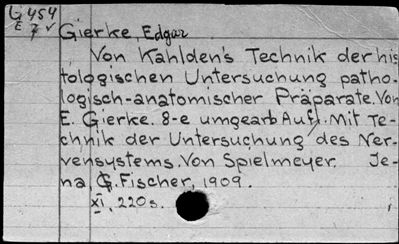 G 454
E 7 v
Gierke, Edgar
Von Kahlden's Technik der his
tologischen Untersuchung patho-
logisch-anatomischer Präparate. Von
E. Gierke. 8-e umgearb Aufl. Mit Te-
chnik der Untersuchung des Ner-
vensystems. Von Spielmeyer. Je-
na, G. Fischer, 1909.
XI, 220 s.